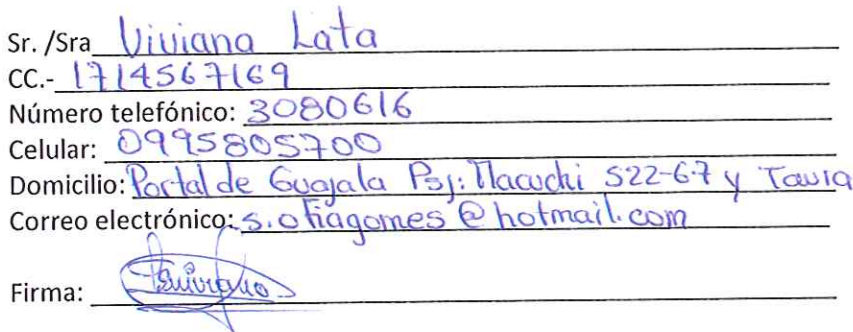 Sr. /Sra Viviana Lata
CC.- 1714567169
Número telefónico: 3080616
Celular: 0995805700
Domicilio: Portal de Guajala Psj: Tlacuchi S22-67 y Tavia
Correo electrónico: s.ofiagomes@hotmail.com
Firma: